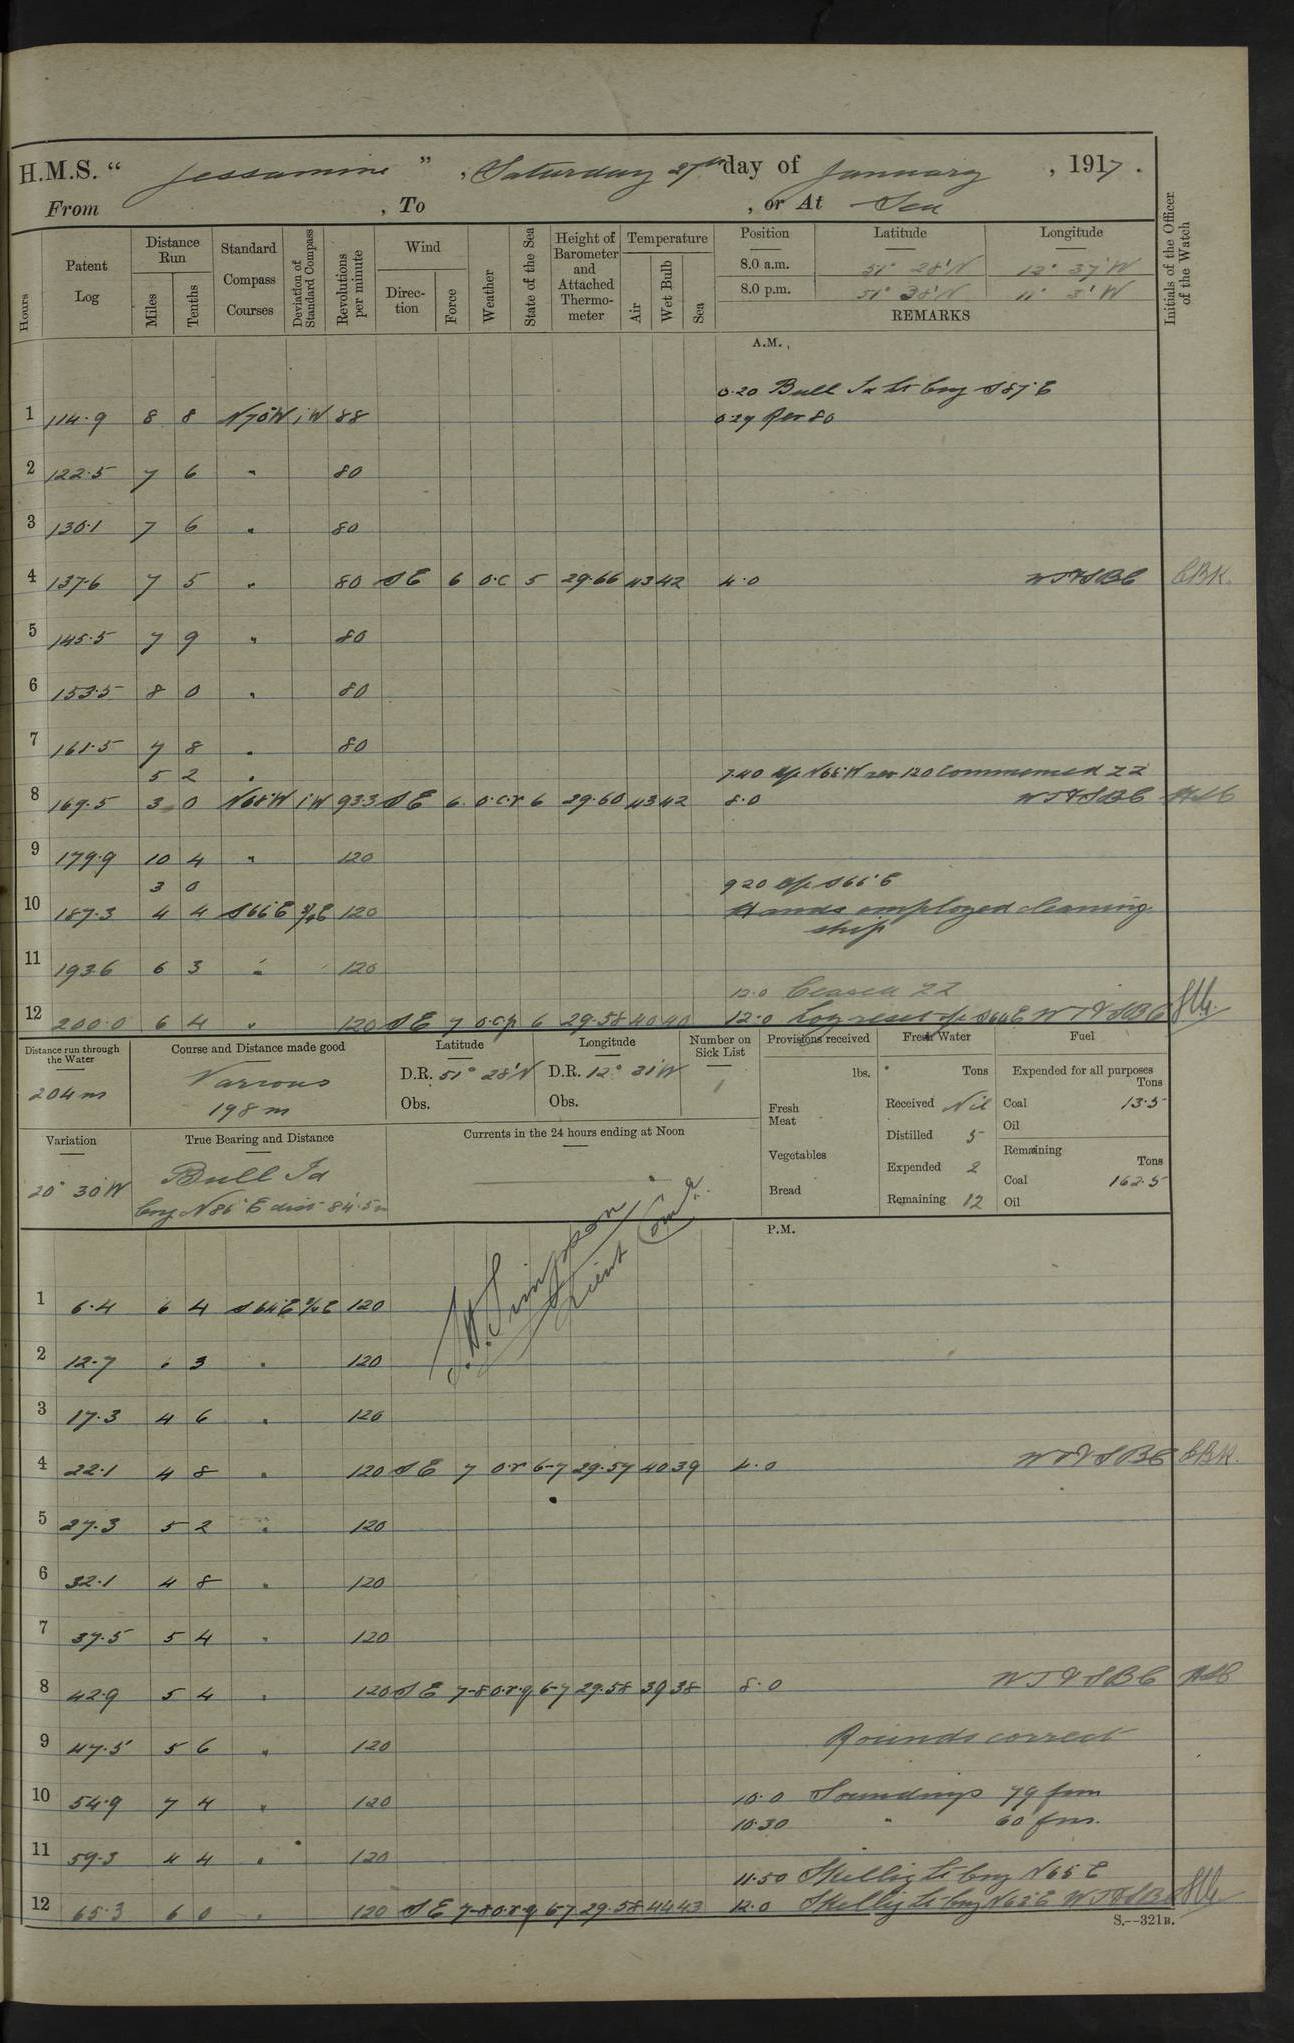 H.M.S. “ Jessamine ” , Saturday 27th day of January , 1917 .
From , To , or At Sea
Hours Patent Log Distance Run Miles Tenths Standard Compass Courses Deviation of Standard Compass Revolutions per minute Wind Direction Force Weather State of the Sea Height of Barometer and Attached Thermometer Temperature Air Wet Bulb Sea
Position Latitude Longitude
8.0 a.m. 51° 28'N 12° 37'W
8.0 p.m. 51° 38'N 11° 3'W
REMARKS
Initials of the Officer of the Watch
A.M.
0.20 Bull Id Lt brg S87°E
1 114.9 8 8 N70°W 1°W 88 0.29 Rev 80
2 122.5 7 6 " 80
3 130.1 7 6 " 80
4 137.6 7 5 " 80 SE 6 o.c 5 29.66 43 42 4.0 WTVSBC CBK.
5 145.5 7 9 " 80
6 153.5 8 0 " 80
7 161.5 7 8 " 80
5 2 " 7.40 A/c N68°W rev 120 Commenced ZZ
8 169.5 3 0 N68°W 1°W 93.3 SE 6 o.c.r 6 29.60 43 42 8.0 WTVSBC
9 179.9 10 4 " 120
3 0 9.20 A/c S66°E
10 187.3 4 4 S66°E ¾E 120 Hands employed cleaning
ship
11 193.6 6 3 " 120
12.0 Ceased ZZ
12 200.0 6 4 " 120 SE 7 o.c.p 6 29.58 40 40 12.0 Log reset A/c S64E WTVSBC
Distance run through the Water
204 m
Course and Distance made good
Various
198 m
Latitude
D.R. 51° 28'N
Obs.
Longitude
D.R. 12° 31'W
Obs.
Number on Sick List
1
Variation
20° 30'W
True Bearing and Distance
Bull Id
brg N86°E dist 84.5m
Currents in the 24 hours ending at Noon
Provisions received
lbs.
Fresh Meat
Vegetables
Bread
Fresh Water
Tons
Received Nil
Distilled 5
Expended 2
Remaining 12
Fuel
Expended for all purposes
Tons
Coal 13.5
Oil
Remaining
Tons
Coal 162.5
Oil
Simpson
Lieut Comdr.
P.M.
1 6.4 6 4 S64°E ¾E 120
2 12.7 6 3 " 120
3 17.3 4 6 " 120
4 22.1 4 8 " 120 SE 7 o.r 6-7 29.57 40 39 4.0 WTVSBC CBK.
5 27.3 5 2 " 120
6 32.1 4 8 " 120
7 37.5 5 4 " 120
8 42.9 5 4 " 120 SE 7-8 o.r.q 6-7 29.58 39 38 8.0 WTVSBC
Rounds correct
9 47.5 5 6 " 120
10 54.9 7 4 " 120 10.0 Soundings 79 fms
10.30 " 60 fms.
11 59.3 4 4 " 120
11.50 Skellig Lt brg N65°E
12 65.3 6 0 " 120 SE 7-8 o.r.q 6-7 29.58 44 43 12.0 Skellig Lt brg N63°E WTVSBC
S.—321B.